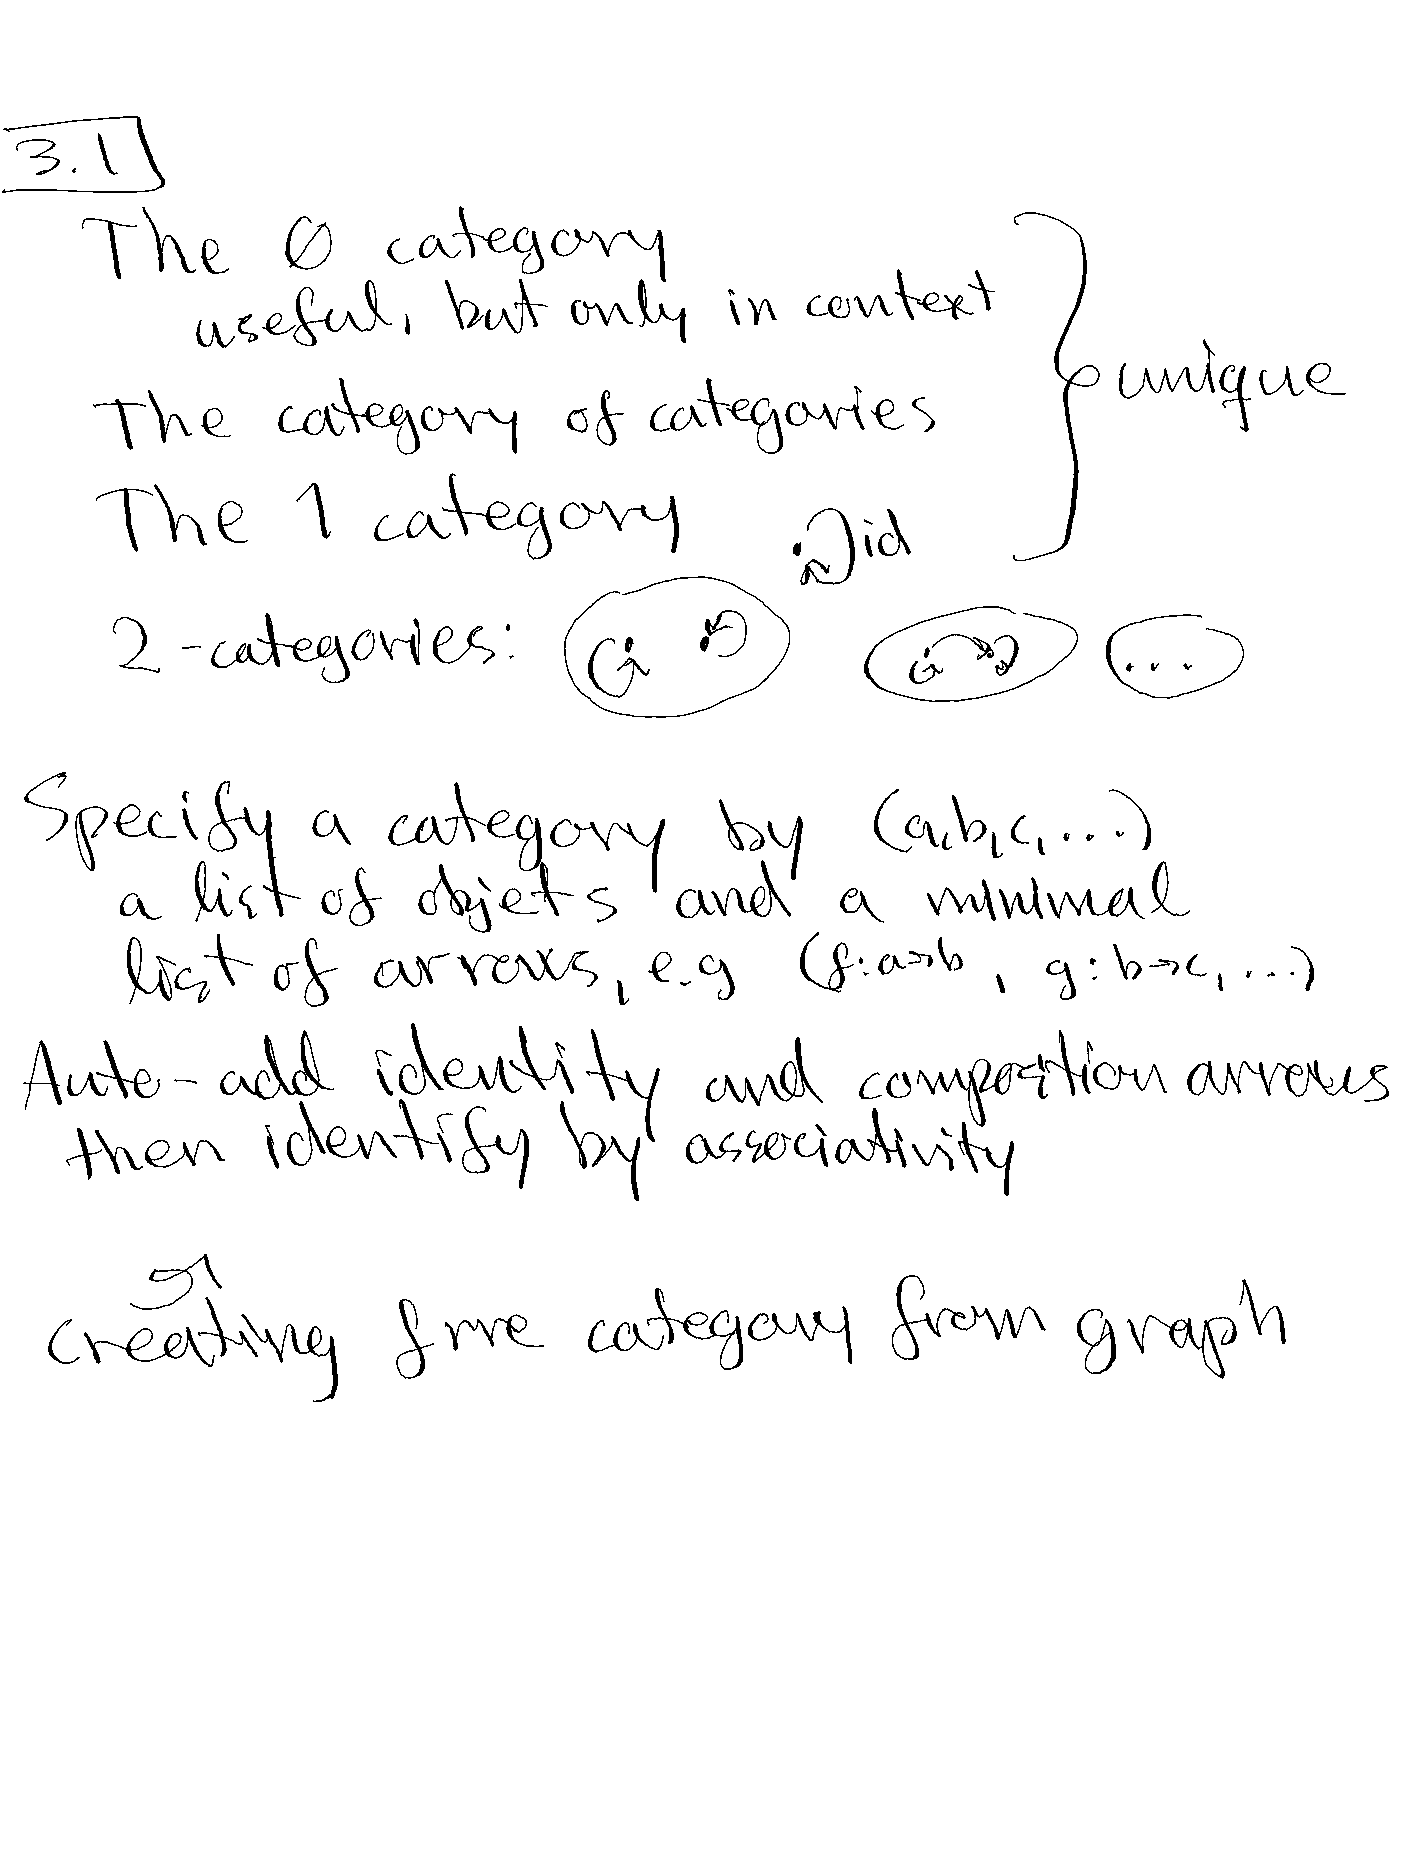 3.1
The ∅ category
useful, but only in context
The category of categories
unique
The 1 category
id
2-categories:
...
Specify a category by (a,b,c,...)
a list of objets and a minimal
list of arrows, e.g (f:a→b, g:b→c,...)
Auto-add identity and compostion arrows
then identify by associativity
creating free category from graph